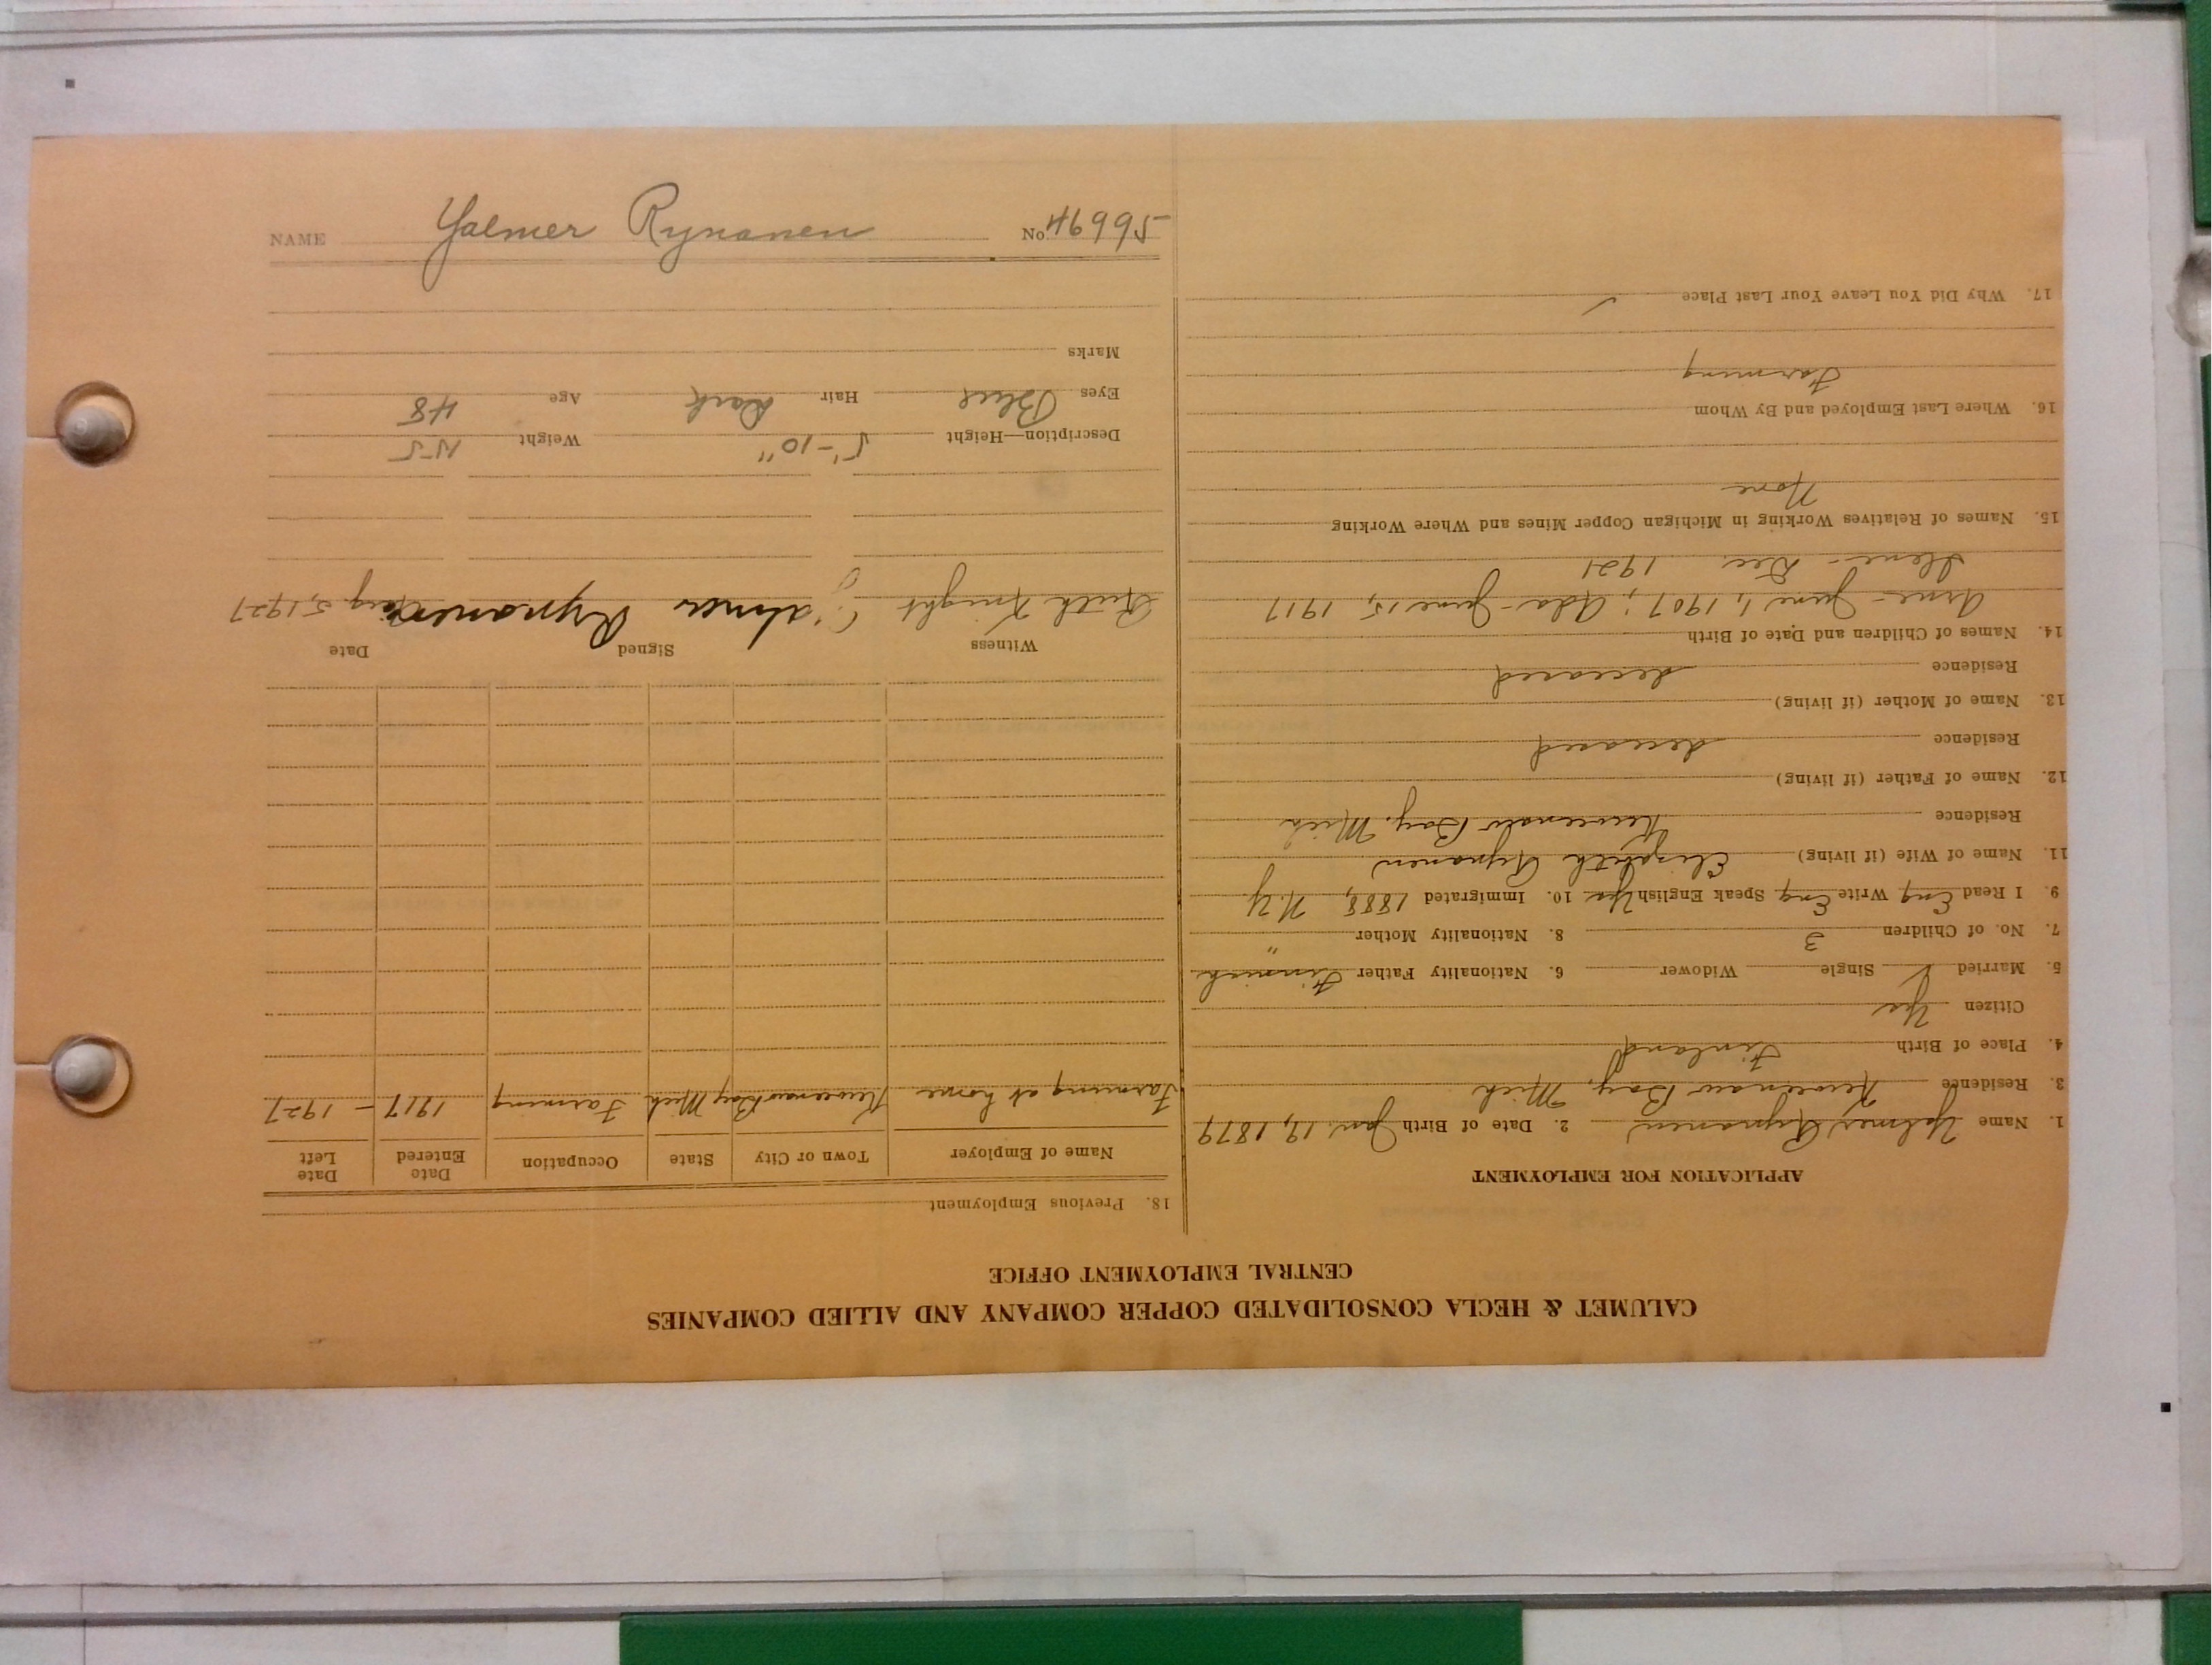 NAME Yalmer Rynanen No. 46995
CALUMET & HECLA CONSOLIDATED COPPER COMPANY AND ALLIED COMPANIES
CENTRAL EMPLOYMENT OFFICE
APPLICATION FOR EMPLOYMENT
1. Name Yalmer Rynanen 2. Date of Birth Jan. 19, 1879
3. Residence Keweenaw Bay, Mich
4. Place of Birth Finland
Citizen Yes
5. Married ✓ Single Widower 6. Nationality Father Finnish
7. No. of Children 3 8. Nationality Mother "
9. I Read Eng Write Eng Speak English Yes 10. Immigrated 1888, N.Y
11. Name of Wife (if living) Elizabeth Rynanen
Residence Keweenaw Bay, Mich
12. Name of Father (if living)
Residence deceased
13. Name of Mother (if living)
Residence deceased
14. Names of Children and Date of Birth
Arne - June 1, 1907; Ada - June 15, 1917
- Dec. 1921
15. Names of Relatives Working in Michigan Copper Mines and Where Working
None
16. Where Last Employed and By Whom
Farming
17. Why Did You Leave Your Last Place ✓
18. Previous Employment
Name of Employer Town or City State Occupation Date Entered Date Left
Farming at home Keweenaw Bay Mich Farming 1917 - 1927
Witness Signed Date
Ruth Knight Yalmer Rynanen Aug. 5, 1927
Description—Height 5'-10" Weight 155
Eyes Blue Hair Dark Age 48
Marks